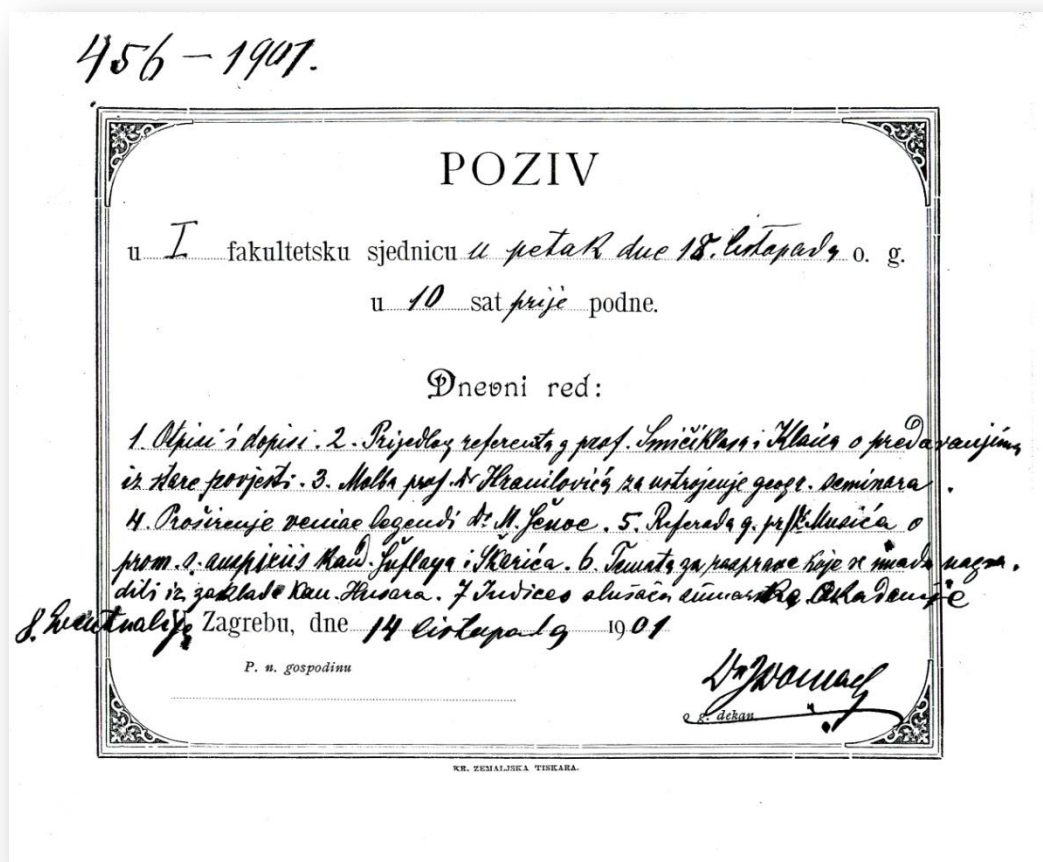 456 – 1901.
POZIV
u I fakultetsku sjednicu u petak dne 18. listopada o. g.
u 10 sat prije podne.
Dnevni red:
1. Otpisi i dopisi. 2. Prijedlog referenta g prof. Smičiklasa i Klaića o predavanjima
iz stare povjesti. 3. Molba prof. dr Hranilovića za ustrojenje geogr. seminara.
4. Proširenje veniae legendi dr. M. Šenoe. 5. Referada g. prof. Musića o
prom. s. auspiciis kand. Šuflaya i Škarića. 6. Temata za rasprave koje se imadu nagra-
diti iz zaklade kan. Husara. 7 Indices slušača šumarske Akademije
8. Eventualije
Zagrebu, dne 14 listopada 1901
P. n. gospodinu
o. g. dekan
KR. ZEMALJSKA TISKARA.